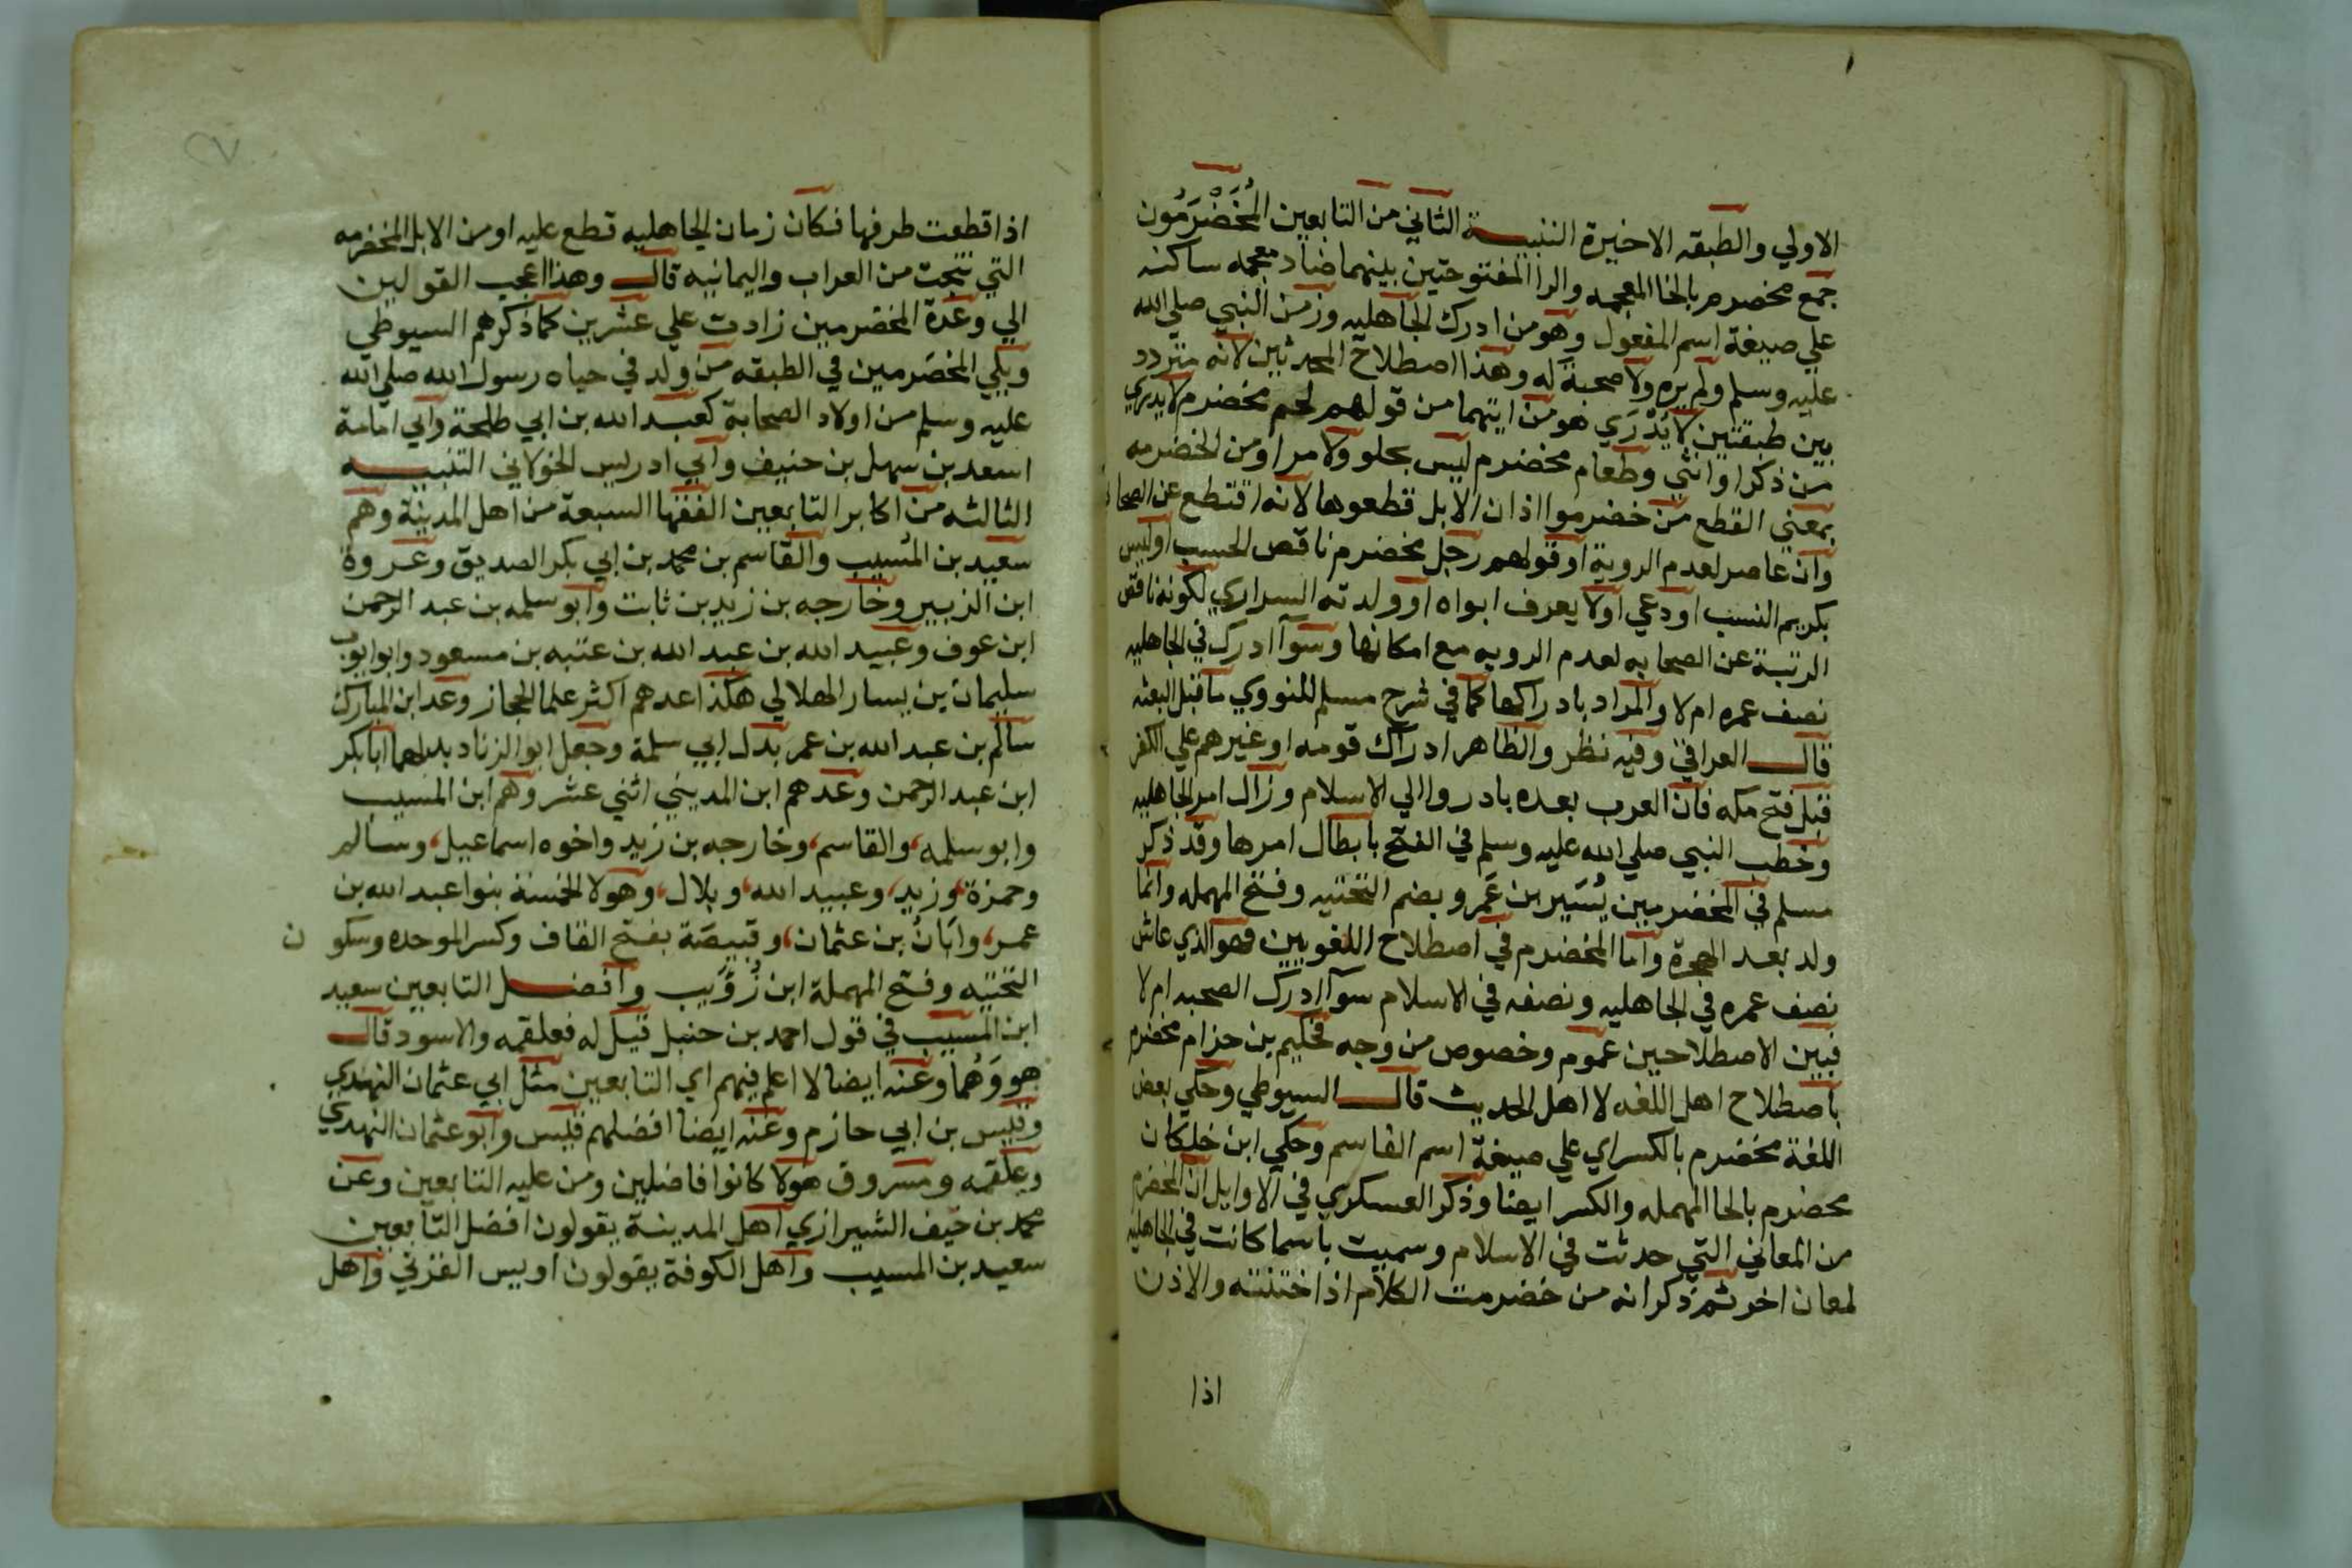 الاولي والطبقه الاخيرة التنبيـــه الثاني من التابعين المُخَضْرَمُون
جمع مخضرم بالخا المعجمه والرا المفتوحتين بينهما ضاد معجمه ساكنه
علي صيغة اسم المفعول وهو من ادرك الجاهليه وزمن النبي صلي الله
عليه وسلم ولم يره ولا صحبة له وهذا اصطلاح المحدثين لانه متردد
بين طبقتين لا يُدْرَي هو من ايتهما من قولهم لحم مخضرم لا يدري
من ذكر او انثي وطعام مخضرم ليس بحلو ولا مر او من الخضرمه
بمعني القطع من خضرموا اذان الابل قطعوها لانه اقتطع عن الصحابه
وان عاصر لعدم الروية او قولهم رجل مخضرم ناقص الحسب او ليس
بكريم النسب او دعي او لا يعرف ابواه او ولدته السراري لكونه ناقص
الرتبة عن الصحابه لعدم الرويه مع امكانها وسوآ ادرك في الجاهليه
نصف عمره ام لا والمراد بادراكها كما في شرح مسلم للنووي ما قبل البعثه
قالـــ العراقي وفيه نظر والظاهر ادراك قومه او غيرهم علي الكفر
قبل فتح مكه فان العرب بعده بادروا الي الاسلام وزال امر الجاهليه
وخطب النبي صلي الله عليه وسلم في الفتح بابطال امرها وقد ذكر
مسلم في المخضرمين يُسَير بن عَمرو بضم التحتيه وفتح المهمله وانما
ولد بعد الهجرة واما المخضرم في اصطلاح اللغويين فهو الذي عاش
نصف عمره في الجاهليه ونصفه في الاسلام سوآ ادرك الصحبه ام لا
فبين الاصطلاحين عموم وخصوص من وجه فحكيم بن حزام مخضرم
باصطلاح اهل اللغه لا اهل الحديث قالـــ السيوطي وحكي بعض
اللغة مخضرم بالكسر اي علي صيغة اسم الفاسم وحكي ابن خلكان
محضرم بالحا المهمله والكسر ايضا وذكر العسكري في الاوايل ان المخضرم
من المعاني التي حدثت في الاسلام وسميت باسما كانت في الجاهليه
لمعان اخر ثم ذكر انه من خضرمت الكلام اذا ختنته والاذن
اذا
اذا قطعت طرفها فكان زمان الجاهليه قطع عليه او من الابل المخضرمه
التي نتجت من العراب واليمانيه قالـــ وهذا اعجب القولين
الي وعدة المخضرمين زادت علي عشرين كما ذكرهم السيوطي
ويلي المخضرمين في الطبقه من ولد في حياه رسول الله صلي الله
عليه وسلم من اولاد الصحابة كعبد الله بن ابي طلحة وابي امامة
اسعد بن سهل بن حنيف وابي ادريس الخولاني التنبيـــه
الثالثه من اكابر التابعين الفقها السبعة من اهل المدينة وهم
سعيد بن المُسَيب والقاسم بن محمد بن ابي بكر الصديق وعروة
ابن الزبير وخارجه بن زيد بن ثابت وابو سلمه بن عبد الرحمن
ابن عوف وعبيد الله بن عبد الله بن عتبه بن مسعود وابو ايوب
سليمان بن يسار الهلالي هكذا عدهم اكثر علما الحجاز وعد ابن المبارك
سالم بن عبد الله بن عمر بدل ابي سلمة وجعل ابو الزناد بدلهما ابا بكر
ابن عبد الرحمن وعدهم ابن المديني اثني عشر وهم ابن المسيب
وابو سلمه، والقاسم، وخارجه بن زيد واخوه اسماعيل، وسالم
وحمزة، وزيد، وعبيد الله، وبلال، وهولا الخمسة بنوا عبد الله بن
عمر، وابَانُ بن عثمان، وقبيصَة بفتح القاف وكسر الموحده وسكون
التحتيه وفتح المهملة ابن زُؤَيب وافضـــل التابعين سعيد
ابن المسيَب في قول احمد بن حنبل قيل له فعلقمه والاسود قالـــ
هو وَهُما وعنه ايضا لا اعلم فيهم اي التابعين مثل ابي عثمان النهدي
وقيس بن ابي حازم وعنه ايضا افضلهم قيس وابو عثمان النهدي
وعلقمه ومسروق هولا كانوا فاضلين ومن عليه التابعين وعن
محمد بن خَيف الشيرازي اهل المدينة يقولون افضل التابعين
سعيد بن المسيب واهل الكوفة يقولون اويس القرني واهل